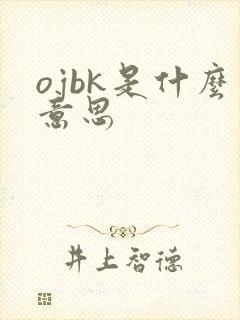 ojbk是什麼
意思
井上智德